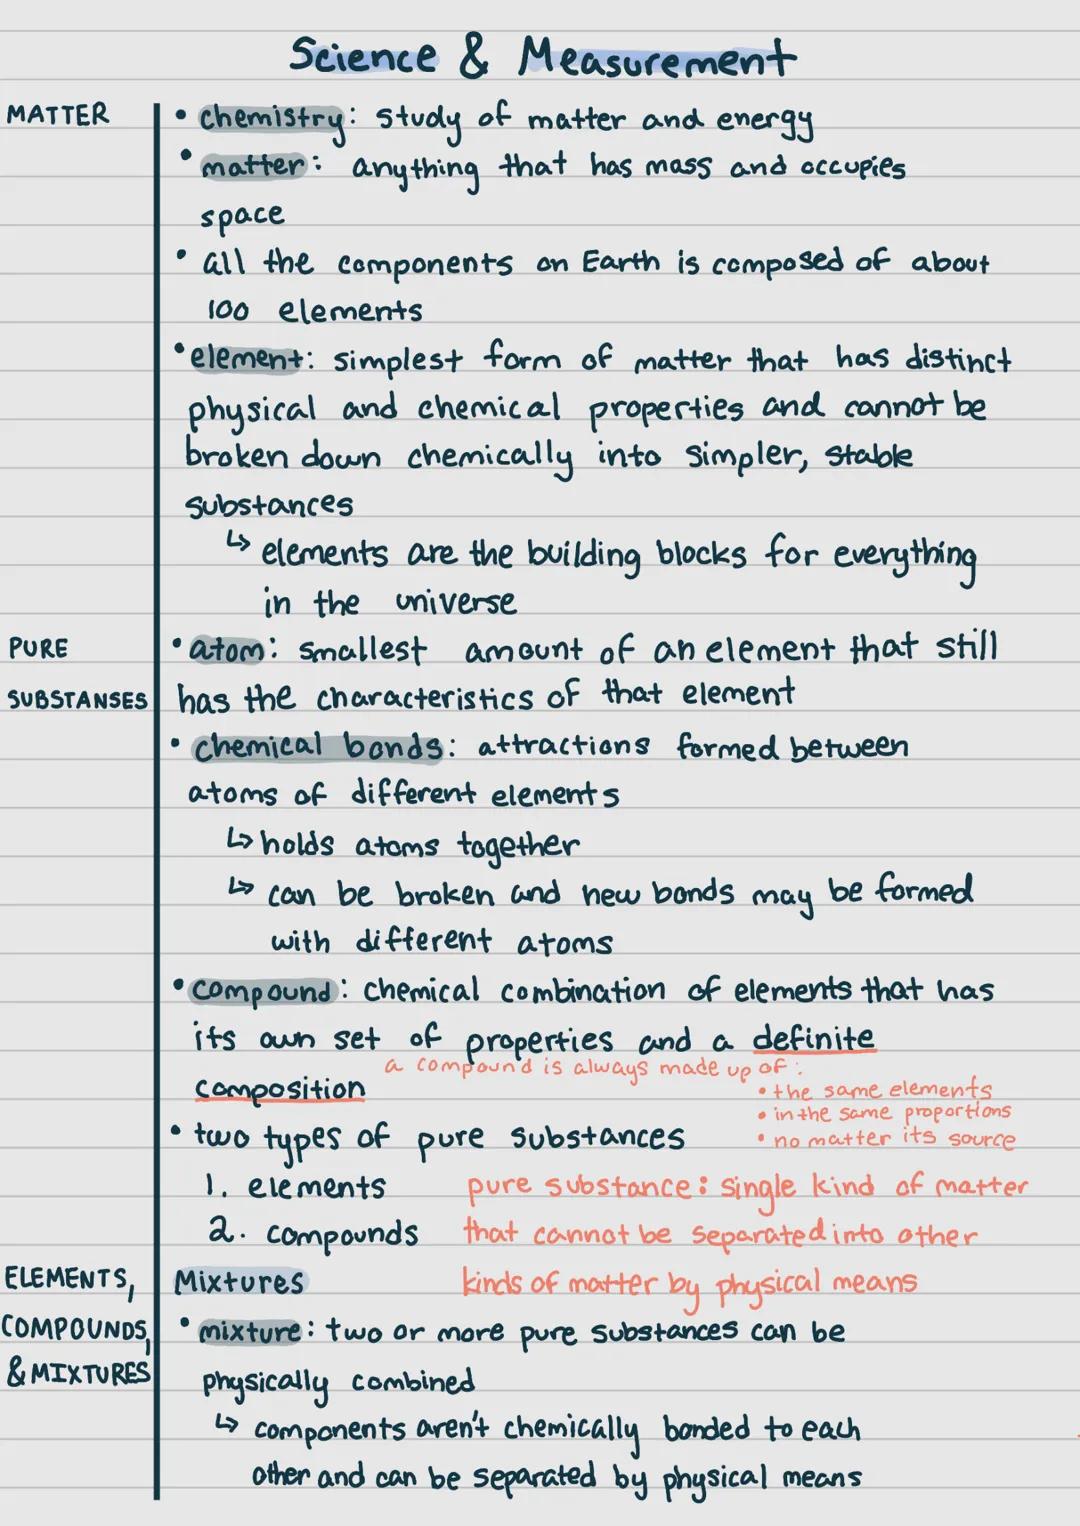 Science & Measurement
MATTER
• chemistry: study of matter and energy
• matter: anything that has mass and occupies
space
• all the components on Earth is composed of about
100 elements
• element: simplest form of matter that has distinct
physical and chemical properties and cannot be
broken down chemically into simpler, stable
substances
↳ elements are the building blocks for everything
in the universe
PURE
SUBSTANSES
• atom: smallest amount of an element that still
has the characteristics of that element
• chemical bonds: attractions formed between
atoms of different elements
↳ holds atoms together
↳ can be broken and new bonds may be formed
with different atoms
• compound: chemical combination of elements that has
its own set of properties and a definite
composition
a compound is always made up of:
• the same elements
• in the same proportions
• no matter its source
• two types of pure substances
1. elements
2. compounds
pure substance: single kind of matter
that cannot be separated into other
kinds of matter by physical means
ELEMENTS,
COMPOUNDS,
& MIXTURES
Mixtures
• mixture: two or more pure substances can be
physically combined
↳ components aren't chemically bonded to each
other and can be separated by physical means